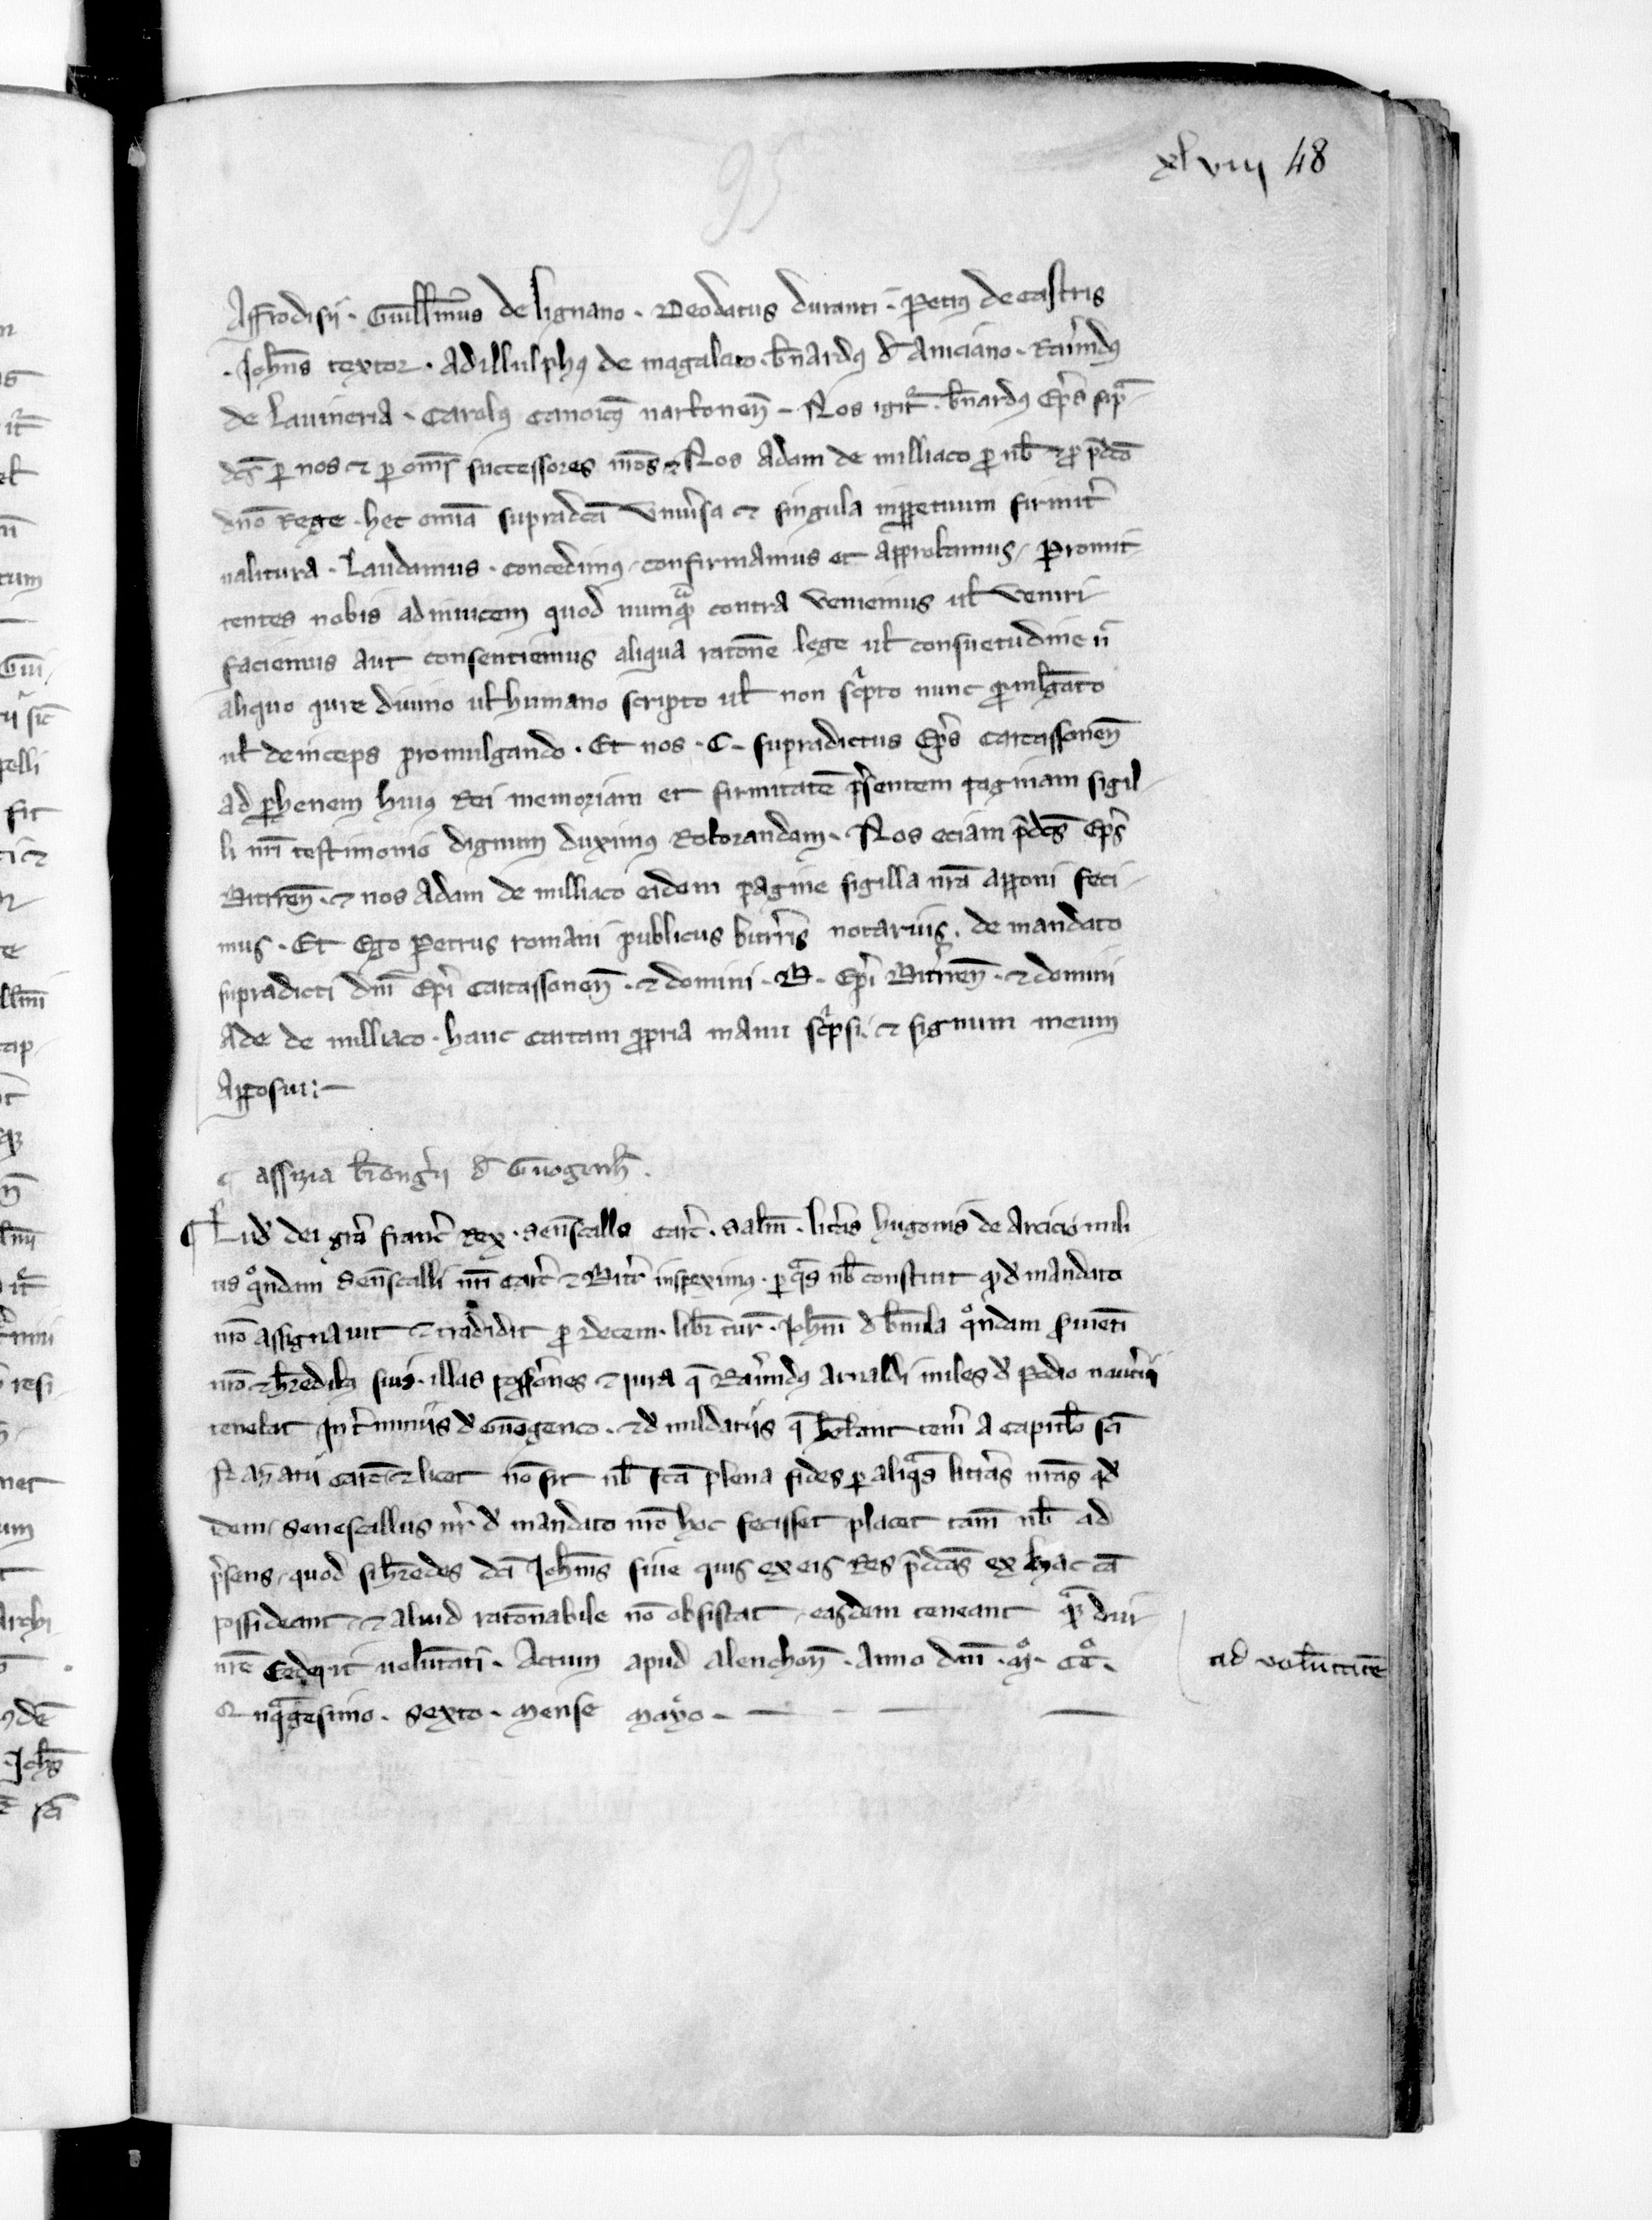 xlviij 48
95
Affrodisij . Guill̄mus de lignano . Deodatus duranti . Petrus de castris
. Joh̄ns textor . Adillulphꝯ de magalato . b̄nardꝯ d̄ Aniciano . Raim̄dꝯ
de Lauineria . Carolꝯ canoicꝯ narbonen̄ . Nos igit᷑ . b̄nardus ep̄s sup̄
dc̄s p̱ nos ⁊ p̱ om̄s successores nr̄os . ⁊ Nos Adam de milliaco p̱ nob̄ ⁊ p̱ p̄dc̄o
dn̄o Rege . hec om̄ia supradc̄a vniu̓sa ⁊ singula inp̱petuum firmit̓
ualitura . Laudamus . concedimꝯ . confirmamus et approbamus . Promit
tentes nobis adinuicem quod numq̄ contra veniemus ul̄ veniri
faciemus aut consentiemus aliqua rat̄one lege ul̄ consuetudine ul̄
aliquo iure diuino ul̄ humano scripto ul̄ non sc̓pto nunc p̱mulgato
ul̄ deinceps promulgando . Et nos . C . supradictus Ep̄s carcassonen̄
ad p̱hennem huiꝯ Rei memoriam et firmitatē p̓sentem paginam sigil
li nr̄i testimonio dignum duximꝯ Roborandam . Nos eciam p̄dc̄s Ep̄s
Bitrren̄ . ⁊ nos Adam de milliaco eidem pagine sigilla nr̄a apponi feci
mus . Et Ego Petrus romani publicus bitr̄ris notarius . de mandato
supradicti dn̄i Ep̄i carcassonen̄ . ⁊ domini . B . Ep̄i Bitrren̄ . ⁊ domini
Ade de milliaco . hanc cartam p̱pria manu sc̓psi . ⁊ signum meum
Apposui :—
¶ assizia b̄reng̓ij d̄
¶ Lud̓ dei gr̄a franc̓ Rex . Sen̄scallo Carc̓ . Sal̄m . litt̓is hugonis de Arcicis mili
tis qͦndam Sen̄scalli nr̄i Carc̓ ⁊ Bitr̓ inspeximꝯ . p̱ q̄s nob̄ constitit qd̓ mandato
nr̄o assignauit ⁊ tradidit p̱ decem . libr̄ tur̄ . Joh̄ni d̄ qͦndam s̓uienti
nr̄o ⁊ h̄redibꝯ suis . illas possession̄es ⁊ iura q̄ Raim̄dꝯ Arnaldi miles d̓ Podio nauc̓ij
tenebat In t̓minijs d̓ . ⁊ d̓ mildarijs q̄ teneri A Capitlo sc̄i
Nazarij carc̄ ⁊ licet nō sit nob̄ fc̄a plena fides p̱ aliq̄s litt̓as nr̄as qd̓
idem Senescallus nr̄ d̓ mandato nr̄o hoc fecisset placet tam̄ nob̄ ad
p̓sens . quod si h̄redes dc̄i Joh̄nis siue quis ex eis Res p̄dc̄as ex hac cā
possideant . ⁊ aliud rat̄onabile nō obsistat . easdem teneant q̄ᵐdiu
nr̄e sederit uolūtati . Actum apud alenchon̄ . Anno dn̄i . Mͦ . CCͦ .
Qinq̄gesimo . Sexto . Mense Mayo . — — —
ad volūtatē